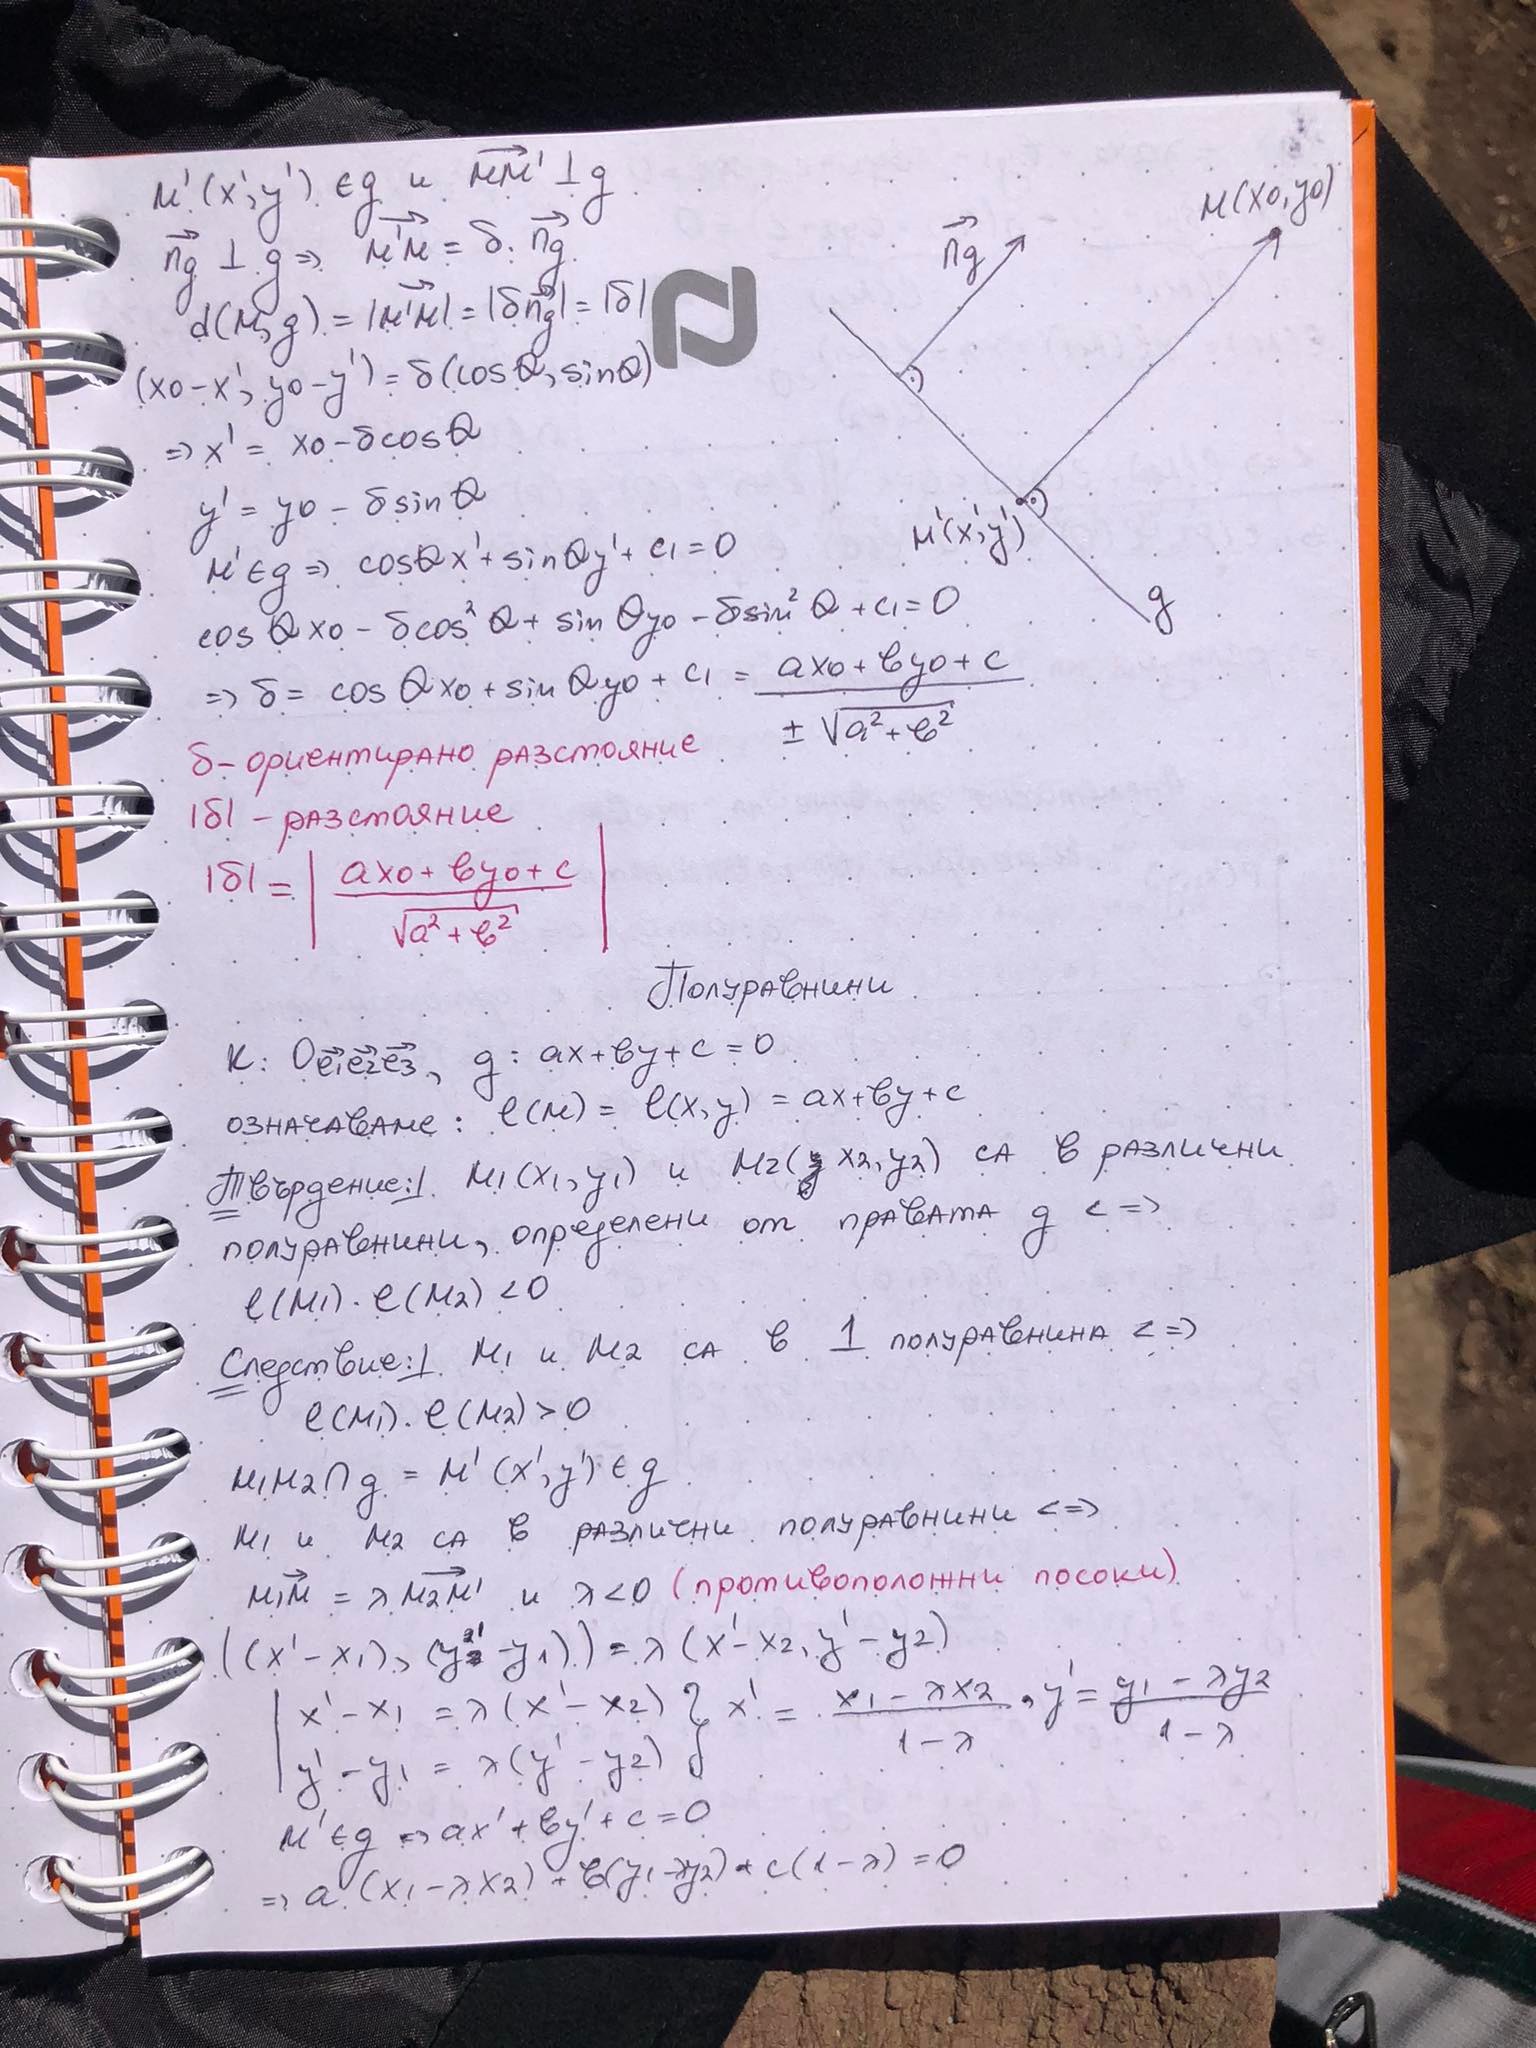 M'(x', y') ∈ g и MM'→ ⊥ g
n→g ⊥ g => M'M→ = δ. n→g
d(M, g) = |M'M→| = |δn→g| = |δ|
(x0 - x', y0 - y') = δ(cosθ, sinθ)
=> x' = x0 - δcosθ
y' = y0 - δsinθ
M' ∈ g => cosθx' + sinθy' + c1 = 0
cosθx0 - δcos²θ + sinθy0 - δsin²θ + c1 = 0
=> δ = cosθx0 + sinθy0 + c1 = (ax0 + by0 + c) / (± √(a² + b²))
n→g
M(x0, y0)
M'(x', y')
g
δ - ориентирано разстояние
|δ| - разстояние
|δ| = | (ax0 + by0 + c) / √(a² + b²) |
Полуравнини
K: Oe1→e2→e3→, g: ax + by + c = 0
означаваме: l(M) = l(x, y) = ax + by + c
Твърдение:| M1(x1, y1) и M2(x2, y2) са в различни
полуравнини, определени от правата g <=>
l(M1). l(M2) < 0
Следствие:| M1 и M2 са в 1 полуравнина <=>
l(M1). l(M2) > 0
M1M2 ∩ g = M'(x', y') ∈ g
M1 и M2 са в различни полуравнини <=>
M1M→ = λ M2M'→ и λ < 0 (противоположни посоки)
((x' - x1), (y' - y1)) = λ(x' - x2, y' - y2)
| x' - x1 = λ(x' - x2) } x' = (x1 - λx2) / (1 - λ), y' = (y1 - λy2) / (1 - λ)
| y' - y1 = λ(y' - y2) }
M' ∈ g => ax' + by' + c = 0
=> a(x1 - λx2) + b(y1 - λy2) + c(1 - λ) = 0